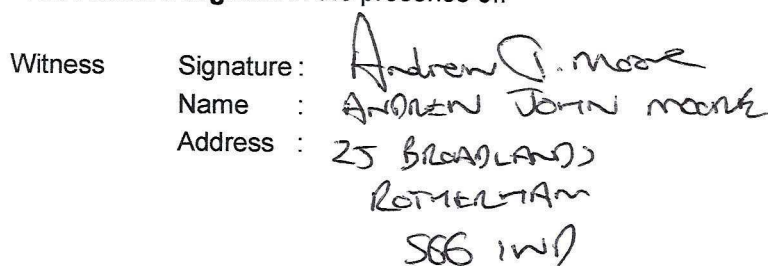 in the presence of:
Witness Signature: Andrew J. Moore
Name : ANDREW JOHN MOORE
Address : 25 BROADLANDS
ROTHERHAM
S66 1WD